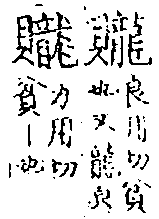 贚
良用切貧
也又龍
贚
力用切
貧丨也